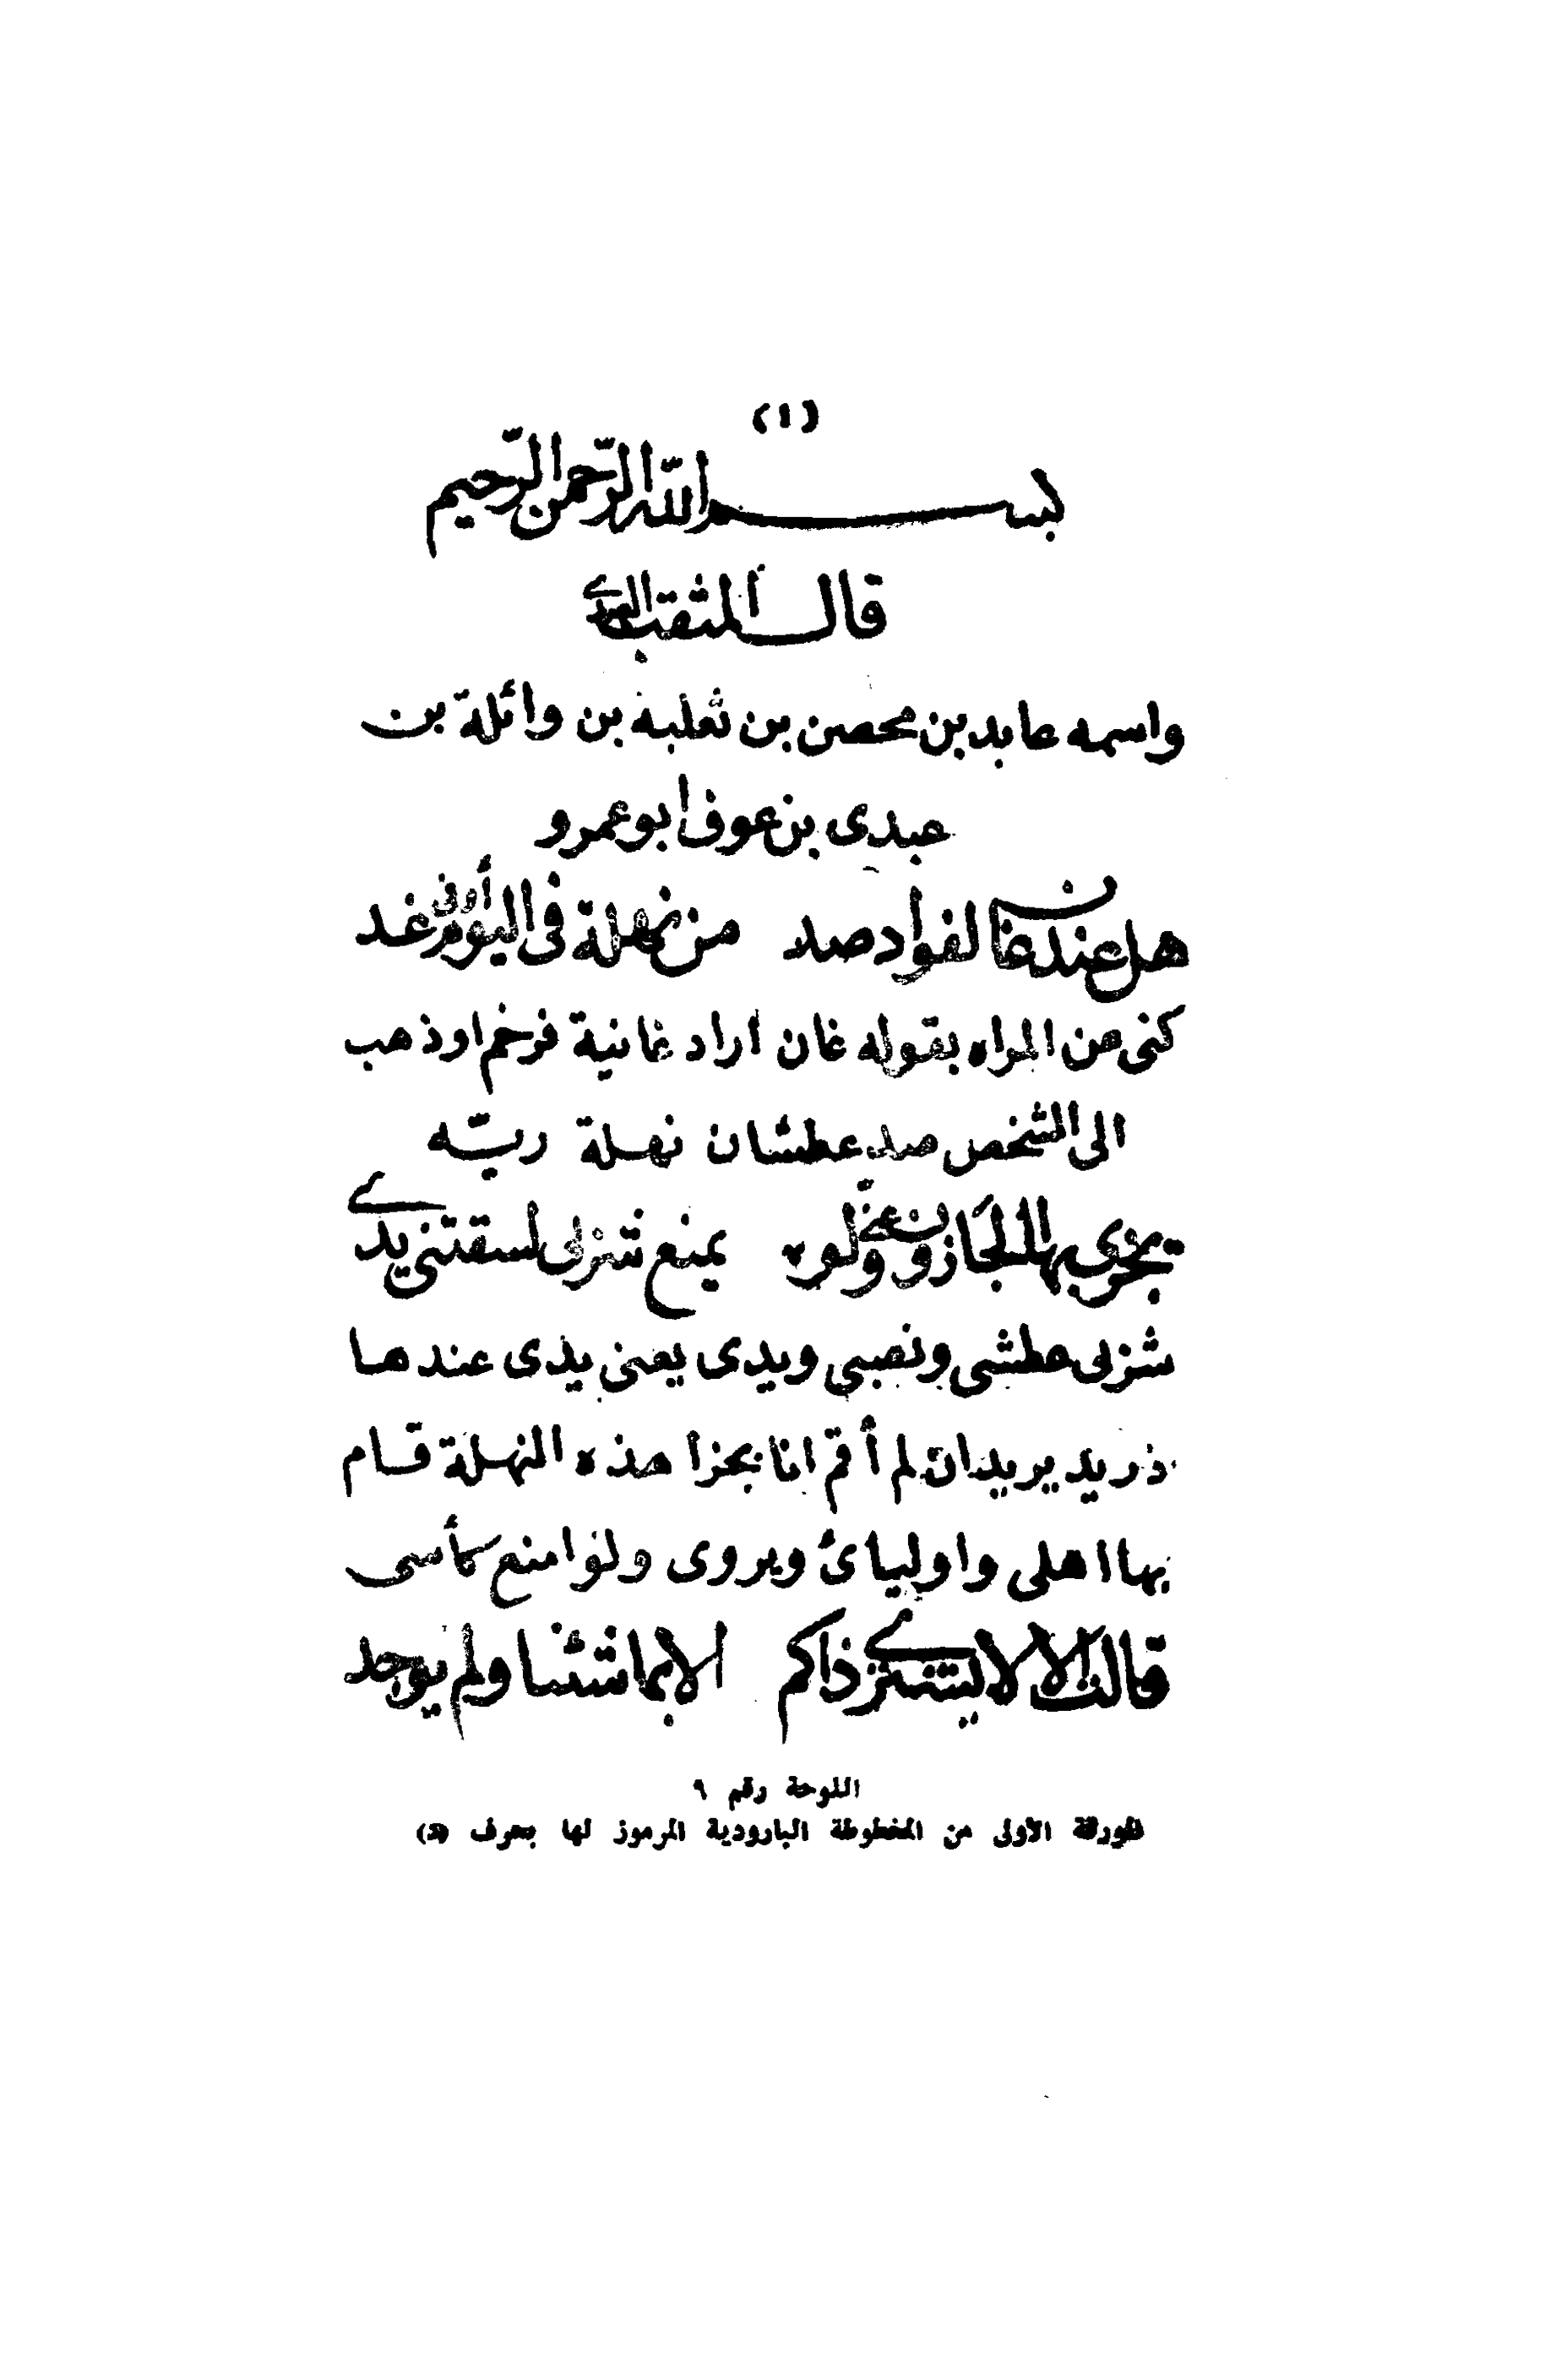 (١)
بسم الله الرحمن الرحيم
قال المثقب العبدي
واسمه عابد بن محصن بن ثعلبه بن واثلة بن
عبدى بن عوف ابو عمرو
هل عند غان لفواد صد من نهلة فى اليوم أو فى غد
كنى عن المراه بقوله غان اراد غانية فرخم او ذهب
الى الشخص صد عطشان نهلة ريّه
يجزى بها الجازون عنّى ولو يمنع شربى لسقتنى يدي
شربى عطشى ونصبى ويدى يعنى يدى عندها
يريد ان لم أقم انا بجزا هذه النهلة قام
بها اهلى واوليائ ويروى ولو امنع كأسى
قالت الا لا يشترى ذاكم الا بما شئنا ولم يوجد
اللوحة رقم ٩
الورقة الأولى من المخطوطة البارودية المرموز لها بحرف